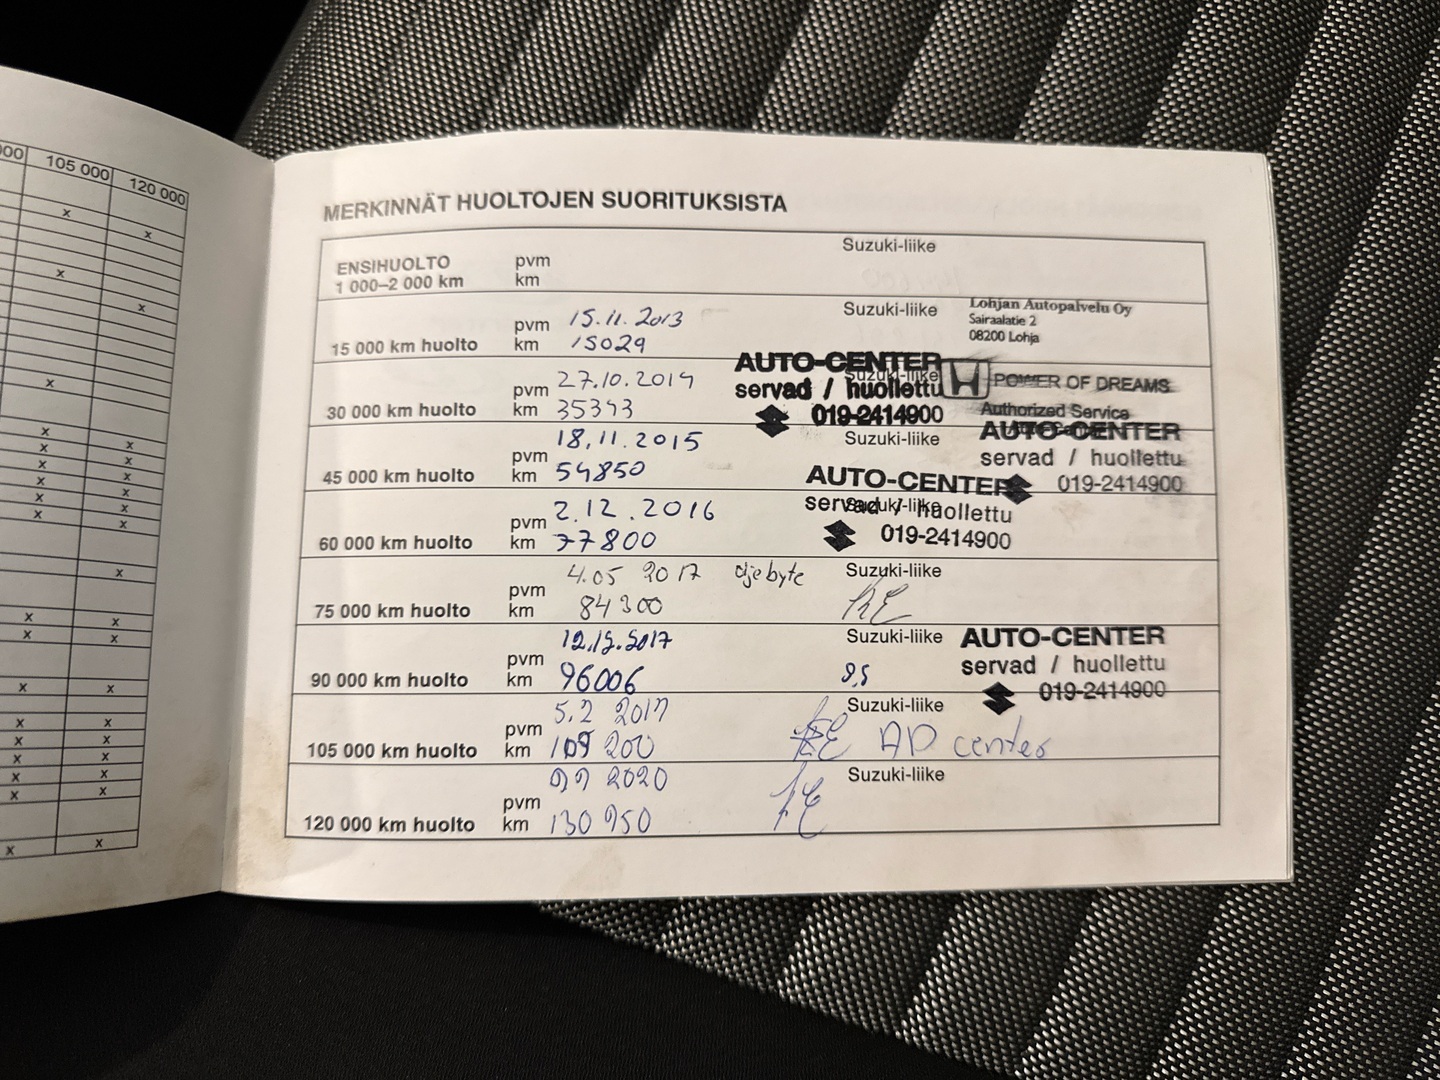 105 000 120 000
MERKINNÄT HUOLTOJEN SUORITUKSISTA
ENSIHUOLTO pvm Suzuki-liike
1 000–2 000 km km
pvm 15.11.2013 Suzuki-liike Lohjan Autopalvelu Oy
Sairaalatie 2
15 000 km huolto km 15029 08200 Lohja
pvm 27.10.2014 Suzuki-liike
30 000 km huolto km 35343
AUTO-CENTER
servad / huollettu
019-2414900
H POWER OF DREAMS
Authorized Service
pvm 18.11.2015 Suzuki-liike
45 000 km huolto km 54850
AUTO-CENTER
servad / huollettu
019-2414900
pvm 2.12.2016 Suzuki-liike
60 000 km huolto km 77800
AUTO-CENTER
servad / huollettu
019-2414900
pvm 4.05 2017 oljebyte Suzuki-liike
75 000 km huolto km 84300
pvm 12.12.2017 Suzuki-liike
90 000 km huolto km 96006
AUTO-CENTER
servad / huollettu
019-2414900
pvm 5.2 Suzuki-liike
105 000 km huolto km 109 200 AD center
pvm 2020 Suzuki-liike
120 000 km huolto km 130 950